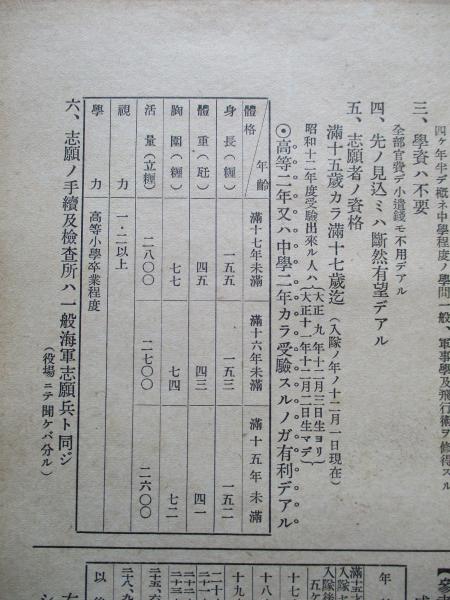 四ケ年半デ概ネ中學程度ノ學問一般、軍事學及飛行術ヲ修得スル
三、學資ハ不要
全部官費デ小遣錢モ不用デアル
四、先ノ見込ミハ斷然有望デアル
五、志願者ノ資格
滿十五歳カラ滿十七歳迄（入隊ノ年ノ十二月一日現在）
昭和十二年度受驗出來ル人ハ｛大正九年十二月三日生ヨリ
大正十一年十二月二日生マデ｝
◎高等二年又ハ中學二年カラ受驗スルノガ有利デアル
體格 年齡 滿十七年未滿 滿十六年未滿 滿十五年未滿
身長（糎） 一五五 一五三 一五二
體重（瓩） 四五 四三 四一
胸圍（糎） 七七 七四 七二
活量（立糎） 二八〇〇 二七〇〇 二六〇〇
視力 一・二以上
學力 高等小學卒業程度
六、志願ノ手續及檢査所ハ一般海軍志願兵ト同ジ
（役場ニテ聞ケバ分ル）